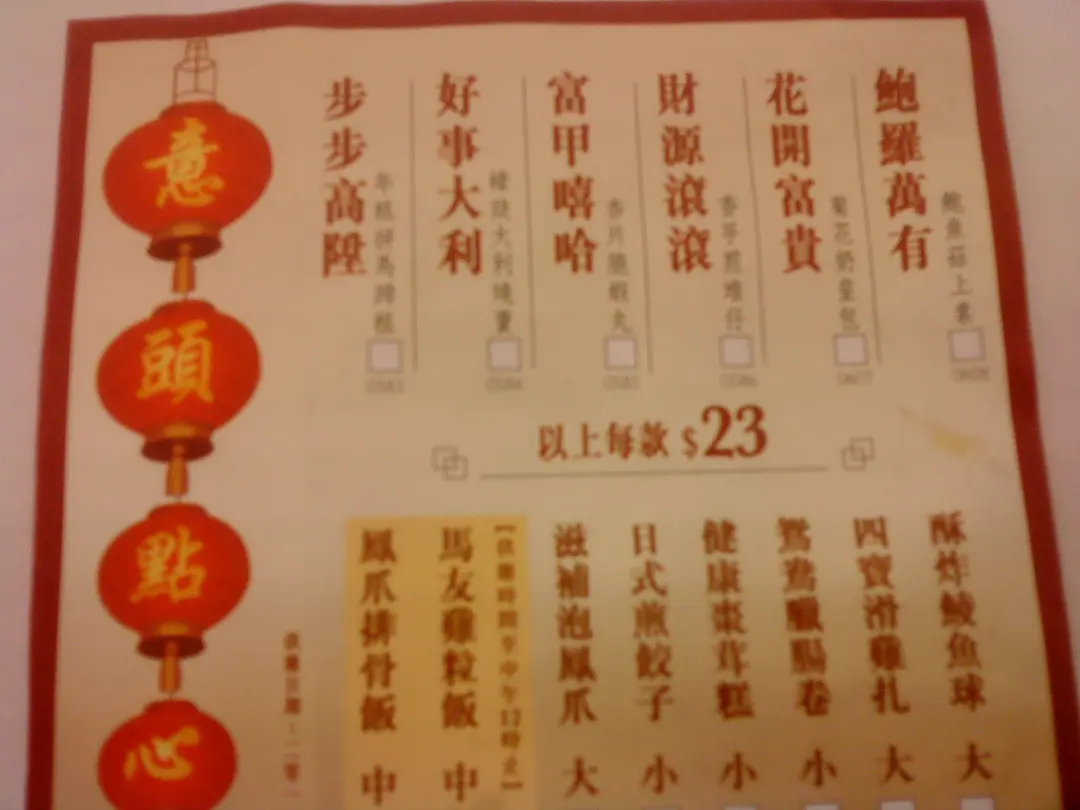 鮑羅萬有
鮑魚菇上素
花開富貴
菊花奶皇包
財源滾滾
香芋煎堆仔
富甲嘻哈
杏片脆蝦丸
好事大利
步步高陞
年糕拼馬蹄糕
以上每款 $23
酥炸鯪魚球 大
四寶滑雞扎 大
鴛鴦臘腸卷 小
健康棗茸糕 小
日式煎餃子 小
滋補泡鳳爪 大
【供應時間至中午12時止】
馬友雞粒飯 中
鳳爪排骨飯 中
意頭點心